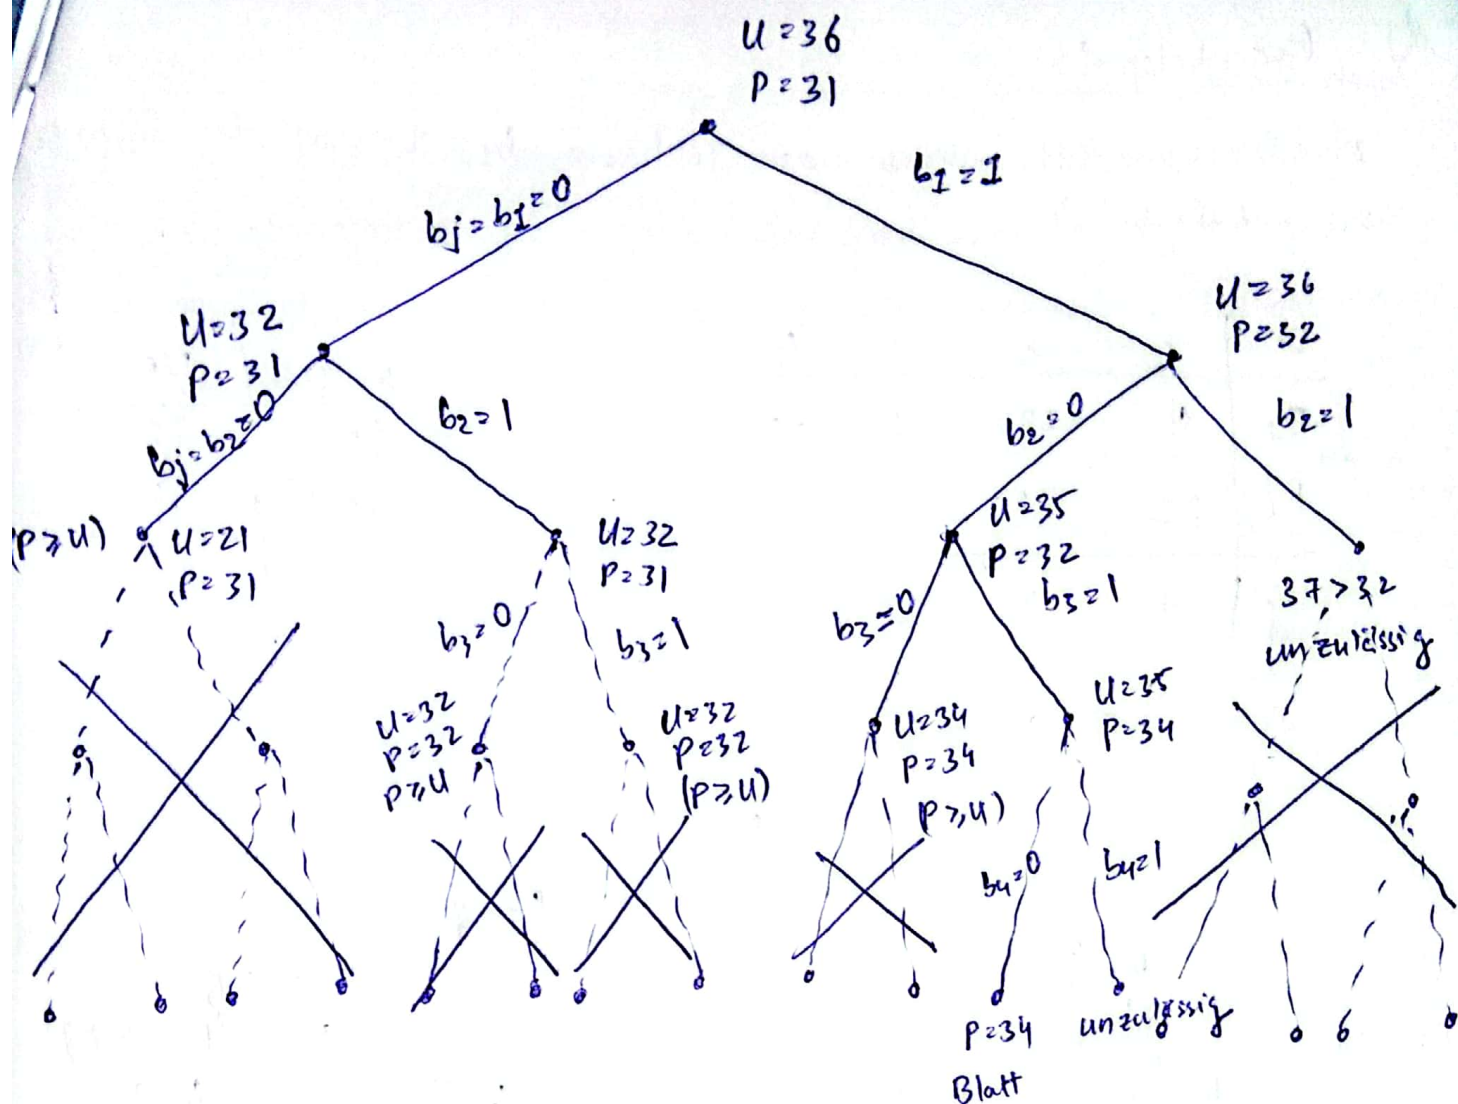 U=36
P=31
bj=b1=0
b1=1
U=32
P=31
U=36
P=32
bj=b2=0
b2=1
b2=0
b2=1
(P≥U)
U=21
P=31
U=32
P=31
U=35
P=32
37>32
unzulässig
b3=0
b3=1
b3=0
b3=1
U=32
P=32
P≥U
U=32
P=32
(P≥U)
U=34
P=34
P≥U)
U=35
P=34
b4=0
b4=1
P=34
Blatt
unzulässig